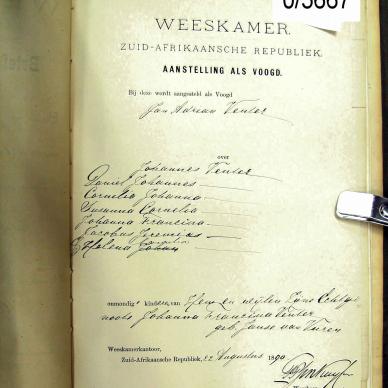 0/5667
WEESKAMER.
ZUID-AFRIKAANSCHE REPUBLIEK.
AANSTELLING ALS VOOGD.
Bij deze wordt aangesteld als Voogd
Jan Adrian Venter
over
Johannes Venter
Daniel Johannes
Cornelia Johanna
Susanna Cornelia
Johanna Francina
Jacobus Jeremias
Helena
onmondige kinderen van Hem en wijlen Zyne Echtge
noote Johanna Francina Venter
geb. Janse van Vuren
Weeskamerkantoor,
Zuid-Afrikaansche Republiek, 22 Augustus 1890